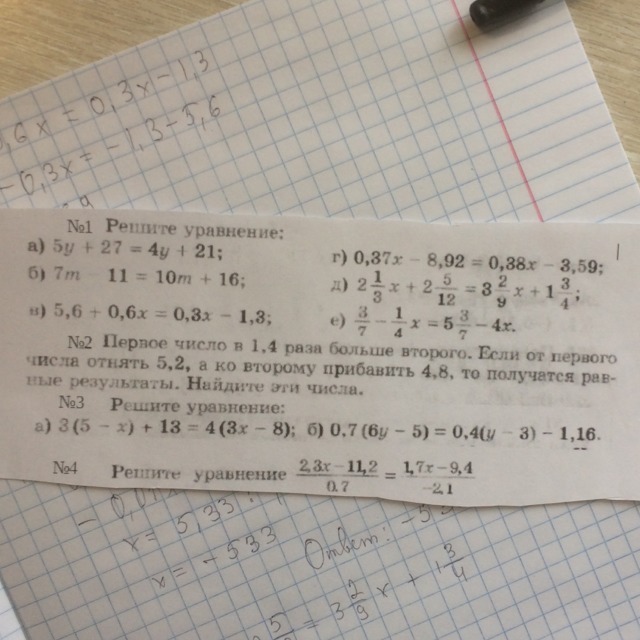 ,6x = 0,3x - 1,3
- 0,3x = -1,3 - 5,6
№1 Решите уравнение:
а) 5y + 27 = 4y + 21;
г) 0,37x - 8,92 = 0,38x - 3,59;
б) 7m - 11 = 10m + 16;
д) 2 1/3 x + 2 5/12 = 3 2/9 x + 1 3/4;
в) 5,6 + 0,6x = 0,3x - 1,3;
е) 3/7 - 1/4 x = 5 3/7 - 4x.
№2 Первое число в 1,4 раза больше второго. Если от первого
числа отнять 5,2, а ко второму прибавить 4,8, то получатся рав-
ные результаты. Найдите эти числа.
№3 Решите уравнение:
а) 3(5 - x) + 13 = 4(3x - 8); б) 0,7(6y - 5) = 0,4(y - 3) - 1,16.
№4 Решите уравнение (2,3x - 11,2)/0,7 = (1,7x - 9,4)/-2,1
x = 5,33
x = -533
Ответ:
= 3 2/9 x + 1 3/4